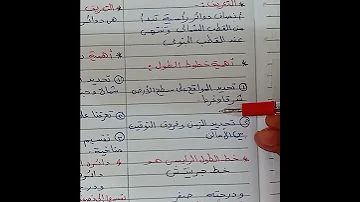 التعريف :-
انصاف دوائر رأسية تبدأ
من القطب الشمالي وتنتهي
عند القطب الجنوبي
* أهمية خطوط الطول :
① تحديد المواقع على سطح الأرض
شرقا وغربا
② تحديد الزمن وفروق التوقيت
بين الأماكن
* خط الطول الرئيسي هو
خط جرينتش
ودرجته صفر
* التعريف
هى دوائر
* أهمية
① تحديد
شمالا و
② تعرفنا على
③ تقسيم
مناخية
* دائرة
ودرجة